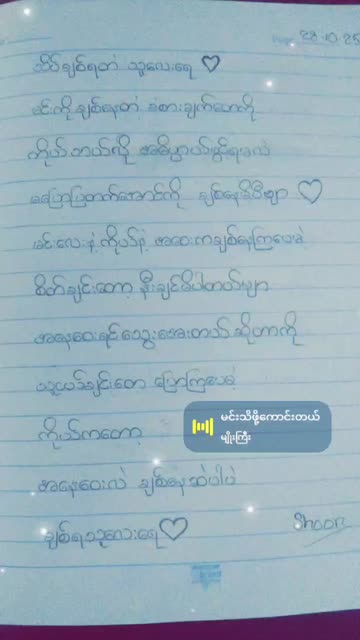 28.10.25
သိပ်ချစ်ရတဲ့ သူလေးရေ ♡
မင်းကိုချစ်နေတဲ့ ခံစားချက်တွေကို
ကိုယ်ဘယ်လို အဓိပ္ပာယ်ဖွင့်ရမလဲ
မပြောပြတတ်အောင်ကို ချစ်နေမိပြီဗျာ ♡
မင်းလေးနဲ့ကိုယ်နဲ့ အဝေးကချစ်နေကြပေမဲ့
စိတ်ချင်းတော့ နီးချင်မိပါတယ်ဗျာ
အနေဝေးရင်သွေးအေးတယ် ဆိုတာကို
သူငယ်ချင်းတွေ ပြောကြပေမဲ့
ကိုယ်ကတော့
အနေဝေးလဲ ချစ်နေဆဲပါပဲ
ချစ်ရသူလေးရေ♡
Shoon
မင်းသိဖို့ကောင်းတယ်
မျိုးကြီး